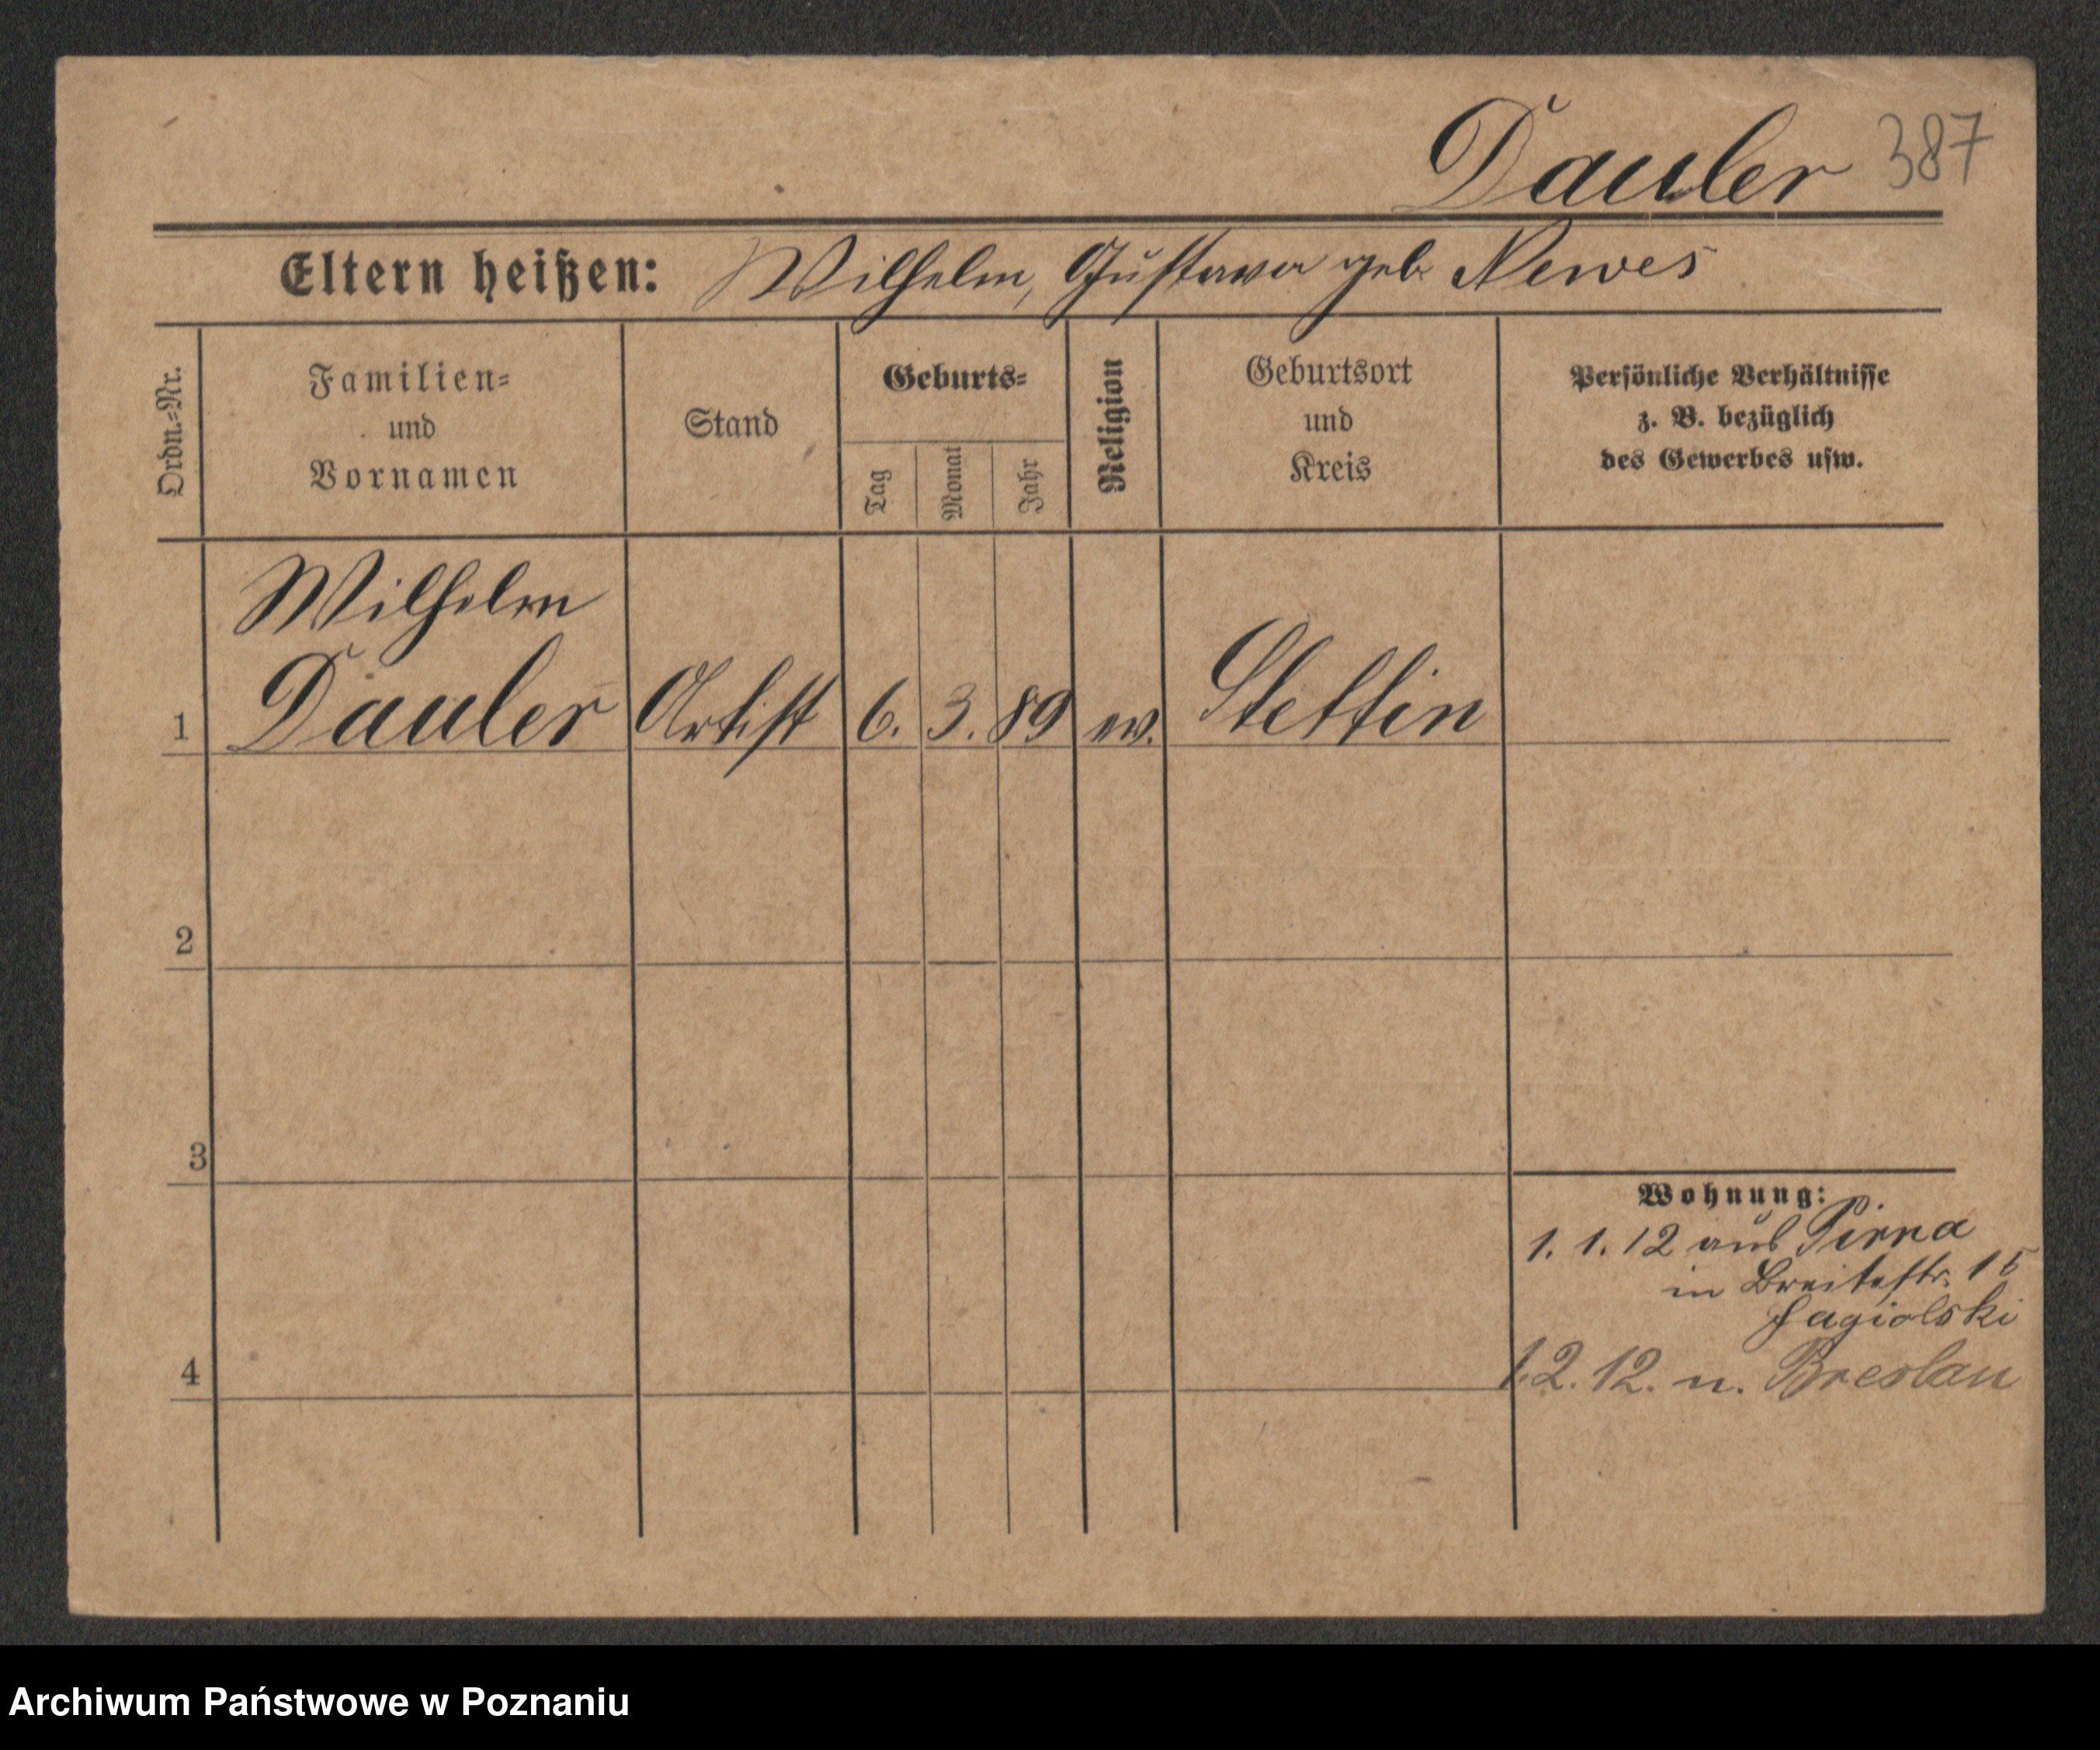 Dauler 387
Eltern heißen: Wilhelm, Gustava geb. Newes
Ordn.-Nr.
Familien-
und
Vornamen
Stand
Geburts-
Tag
Monat
Jahr
Religion
Geburtsort
und
Kreis
Persönliche Verhältnisse
z. B. bezüglich
des Gewerbes usw.
Wilhelm
1 Dauler Artist 6. 3. 89 ev. Stettin
2
3
Wohnung:
1. 1. 12 aus Pirna
in Breitestr. 15
Jagiolski
4
1.2.12. n. Breslau
Archiwum Państwowe w Poznaniu